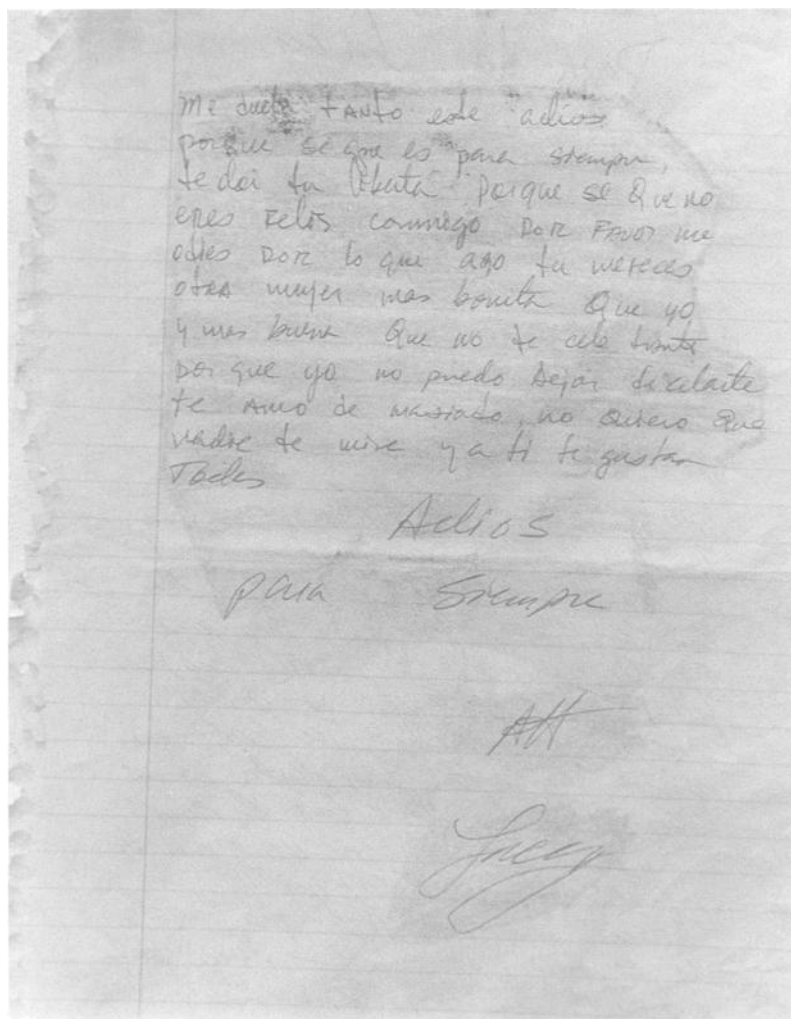 Me duele tanto este adios
porque se que es para siempre,
te doi tu liberta porque se Que no
eres Felis conmigo Por Favor me
odies Por lo que ago tu mereces
otra mujer mas bonita Que yo
y mas buena Que no te cele tanto
por que yo no puedo Dejar de celarte
te Amo de masiado, no Quiero Que
nadie te mire y a ti te gustan
Todas
Adios
para Siempre
Att